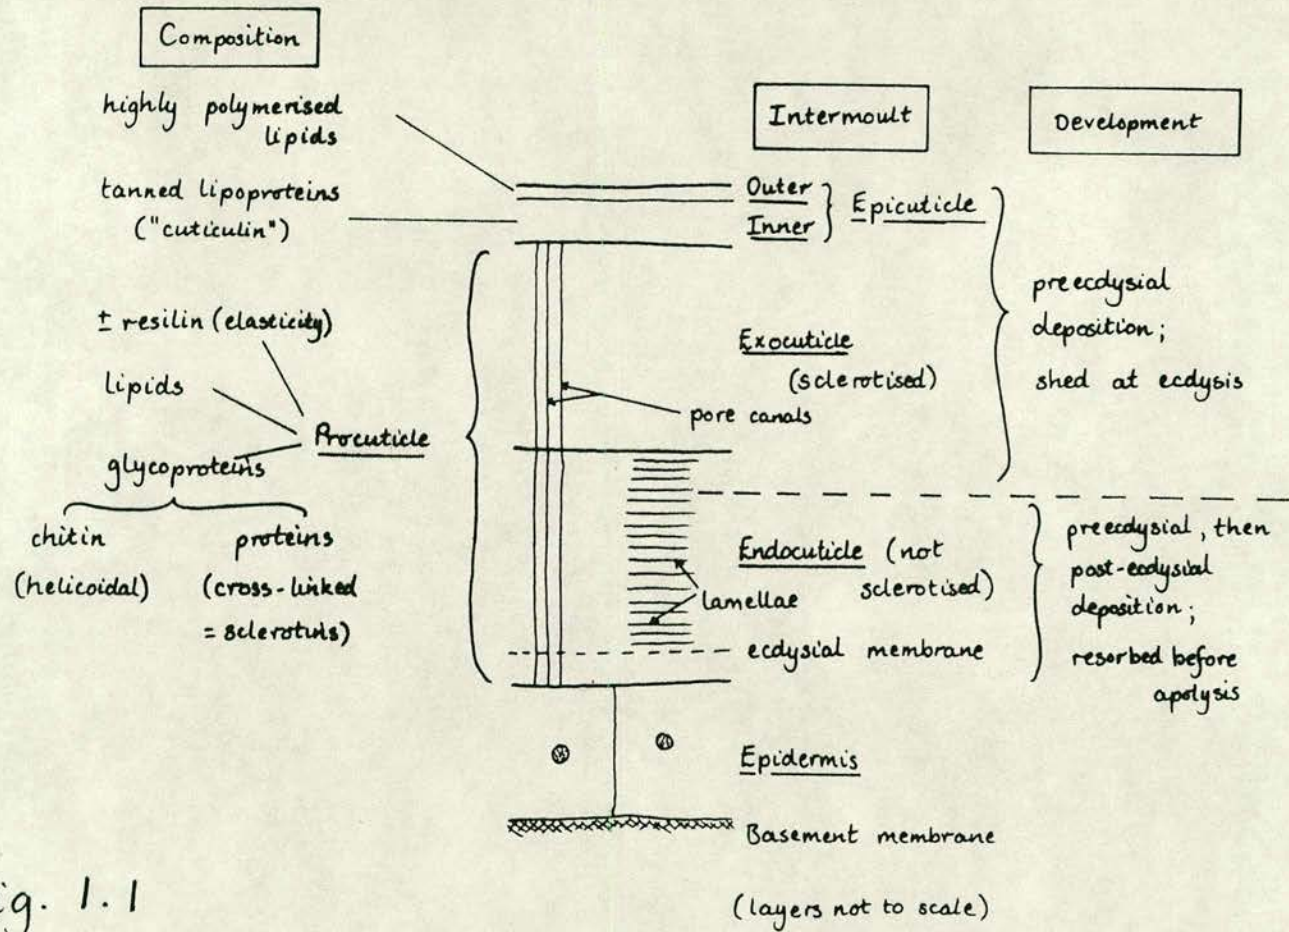 Composition
highly polymerised
lipids
tanned lipoproteins
("cuticulin")
± resilin (elasticity)
lipids
Procuticle
glycoproteins
chitin
(helicoidal)
proteins
(cross-linked
= sclerotins)
Intermoult
Outer
Inner
Epicuticle
Exocuticle
(sclerotised)
pore canals
Endocuticle (not
sclerotised)
lamellae
ecdysial membrane
Epidermis
Basement membrane
(layers not to scale)
Development
preecdysial
deposition;
shed at ecdysis
preecdysial, then
post-ecdysial
deposition;
resorbed before
apolysis
ig. 1.1